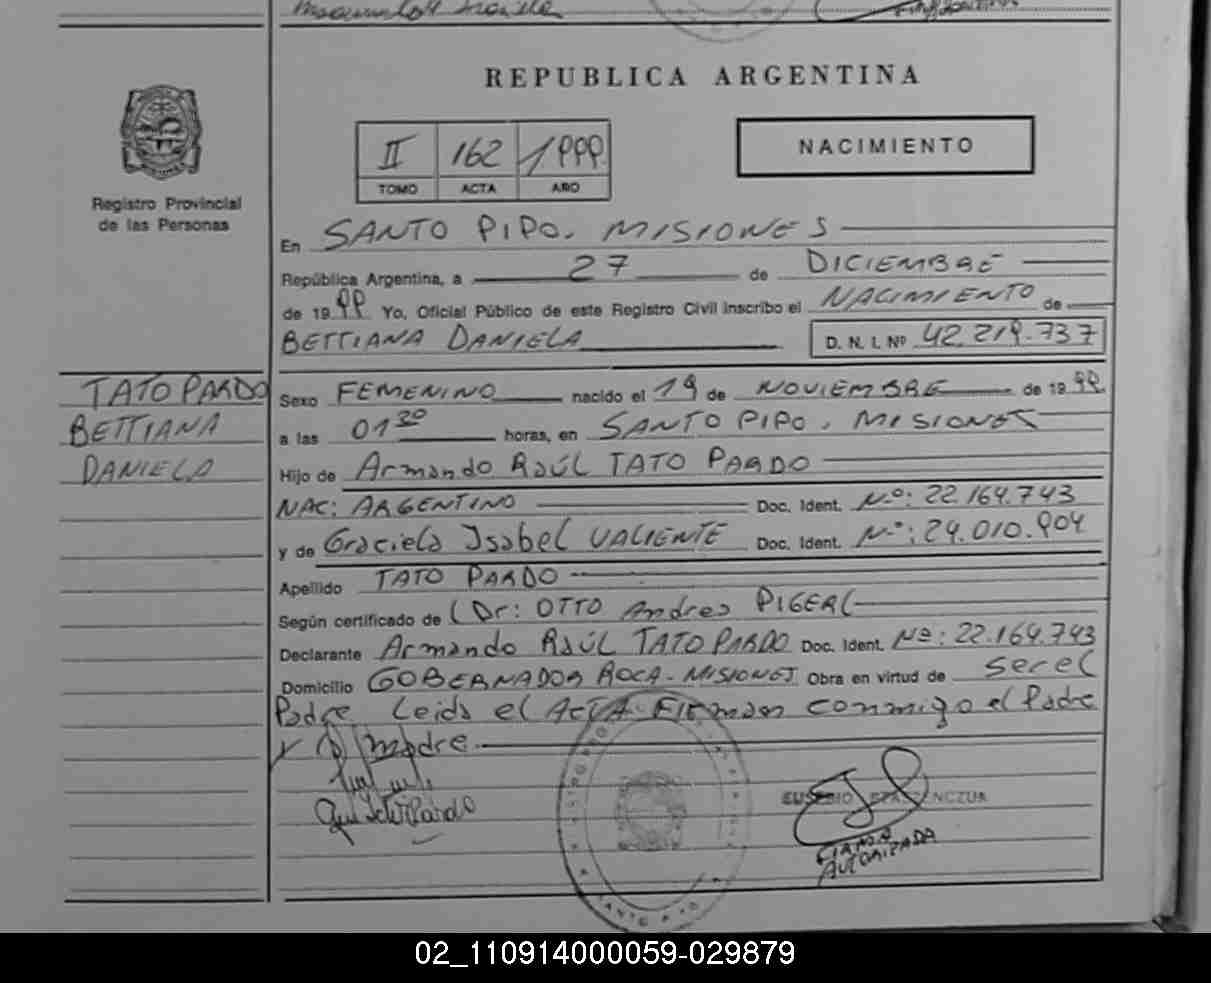 REPUBLICA ARGENTINA
II 162 1999
TOMO ACTA AÑO
NACIMIENTO
Registro Provincial
de las Personas
En SANTO PIPO. MISIONES
República Argentina, a 27 de DICIEMBRE
de 1999 Yo, Oficial Público de este Registro Civil inscribo el NACIMIENTO de
BETTIANA DANIELA D. N. I. Nº 42.219.737
TATO PARDO
BETTIANA
DANIELA
Sexo FEMENINO nacido el 19 de NOVIEMBRE de 1999
a las 01 30 horas, en SANTO PIPO. MISIONES
Hijo de Armando RAÚL TATO PARDO
NAC: ARGENTINO Doc. Ident. Nº: 22.164.743
y de Graciela Isabel VALIENTE Doc. Ident. Nº: 24.010.904
Apellido TATO PARDO
Según certificado de (Dr: OTTO Andres
Declarante Armando RAÚL TATO PARDO Doc. Ident. Nº: 22.164.743
Domicilio GOBERNADOR ROCA - MISIONES Obra en virtud de ser el
Padre Leida el ACTA Firman conmigo el Padre
y la madre.
EUSEBIO
FIRMA
AUTORIZADA
02_110914000059-029879